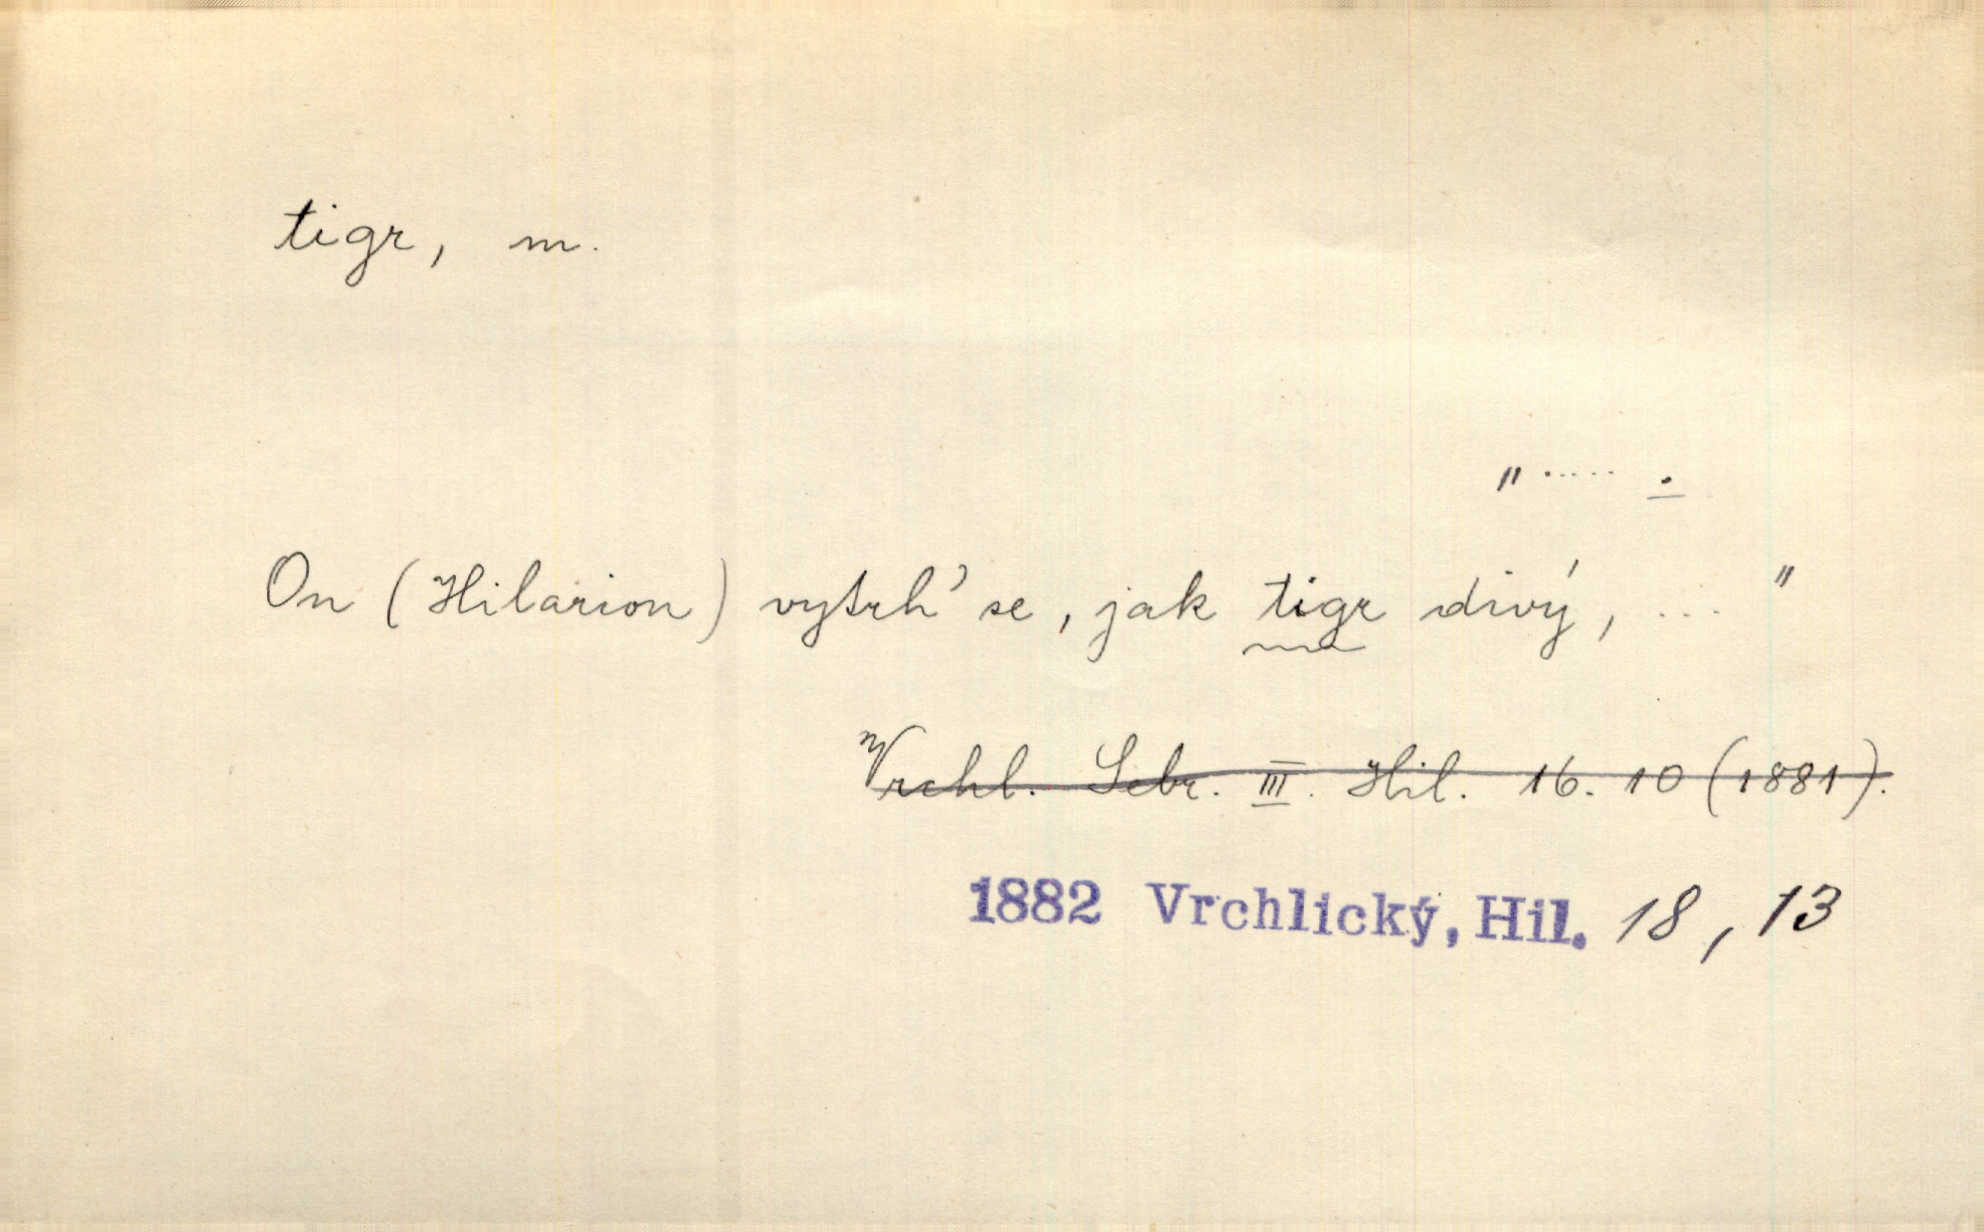 tigr, m.
„ ..... .
On (Hilarion) vytrh' se, jak tigr divý, ... "
Vrchl. Sebr. III. Hil. 16. 10 (1881).
1882 Vrchlický, Hil. 18, 13